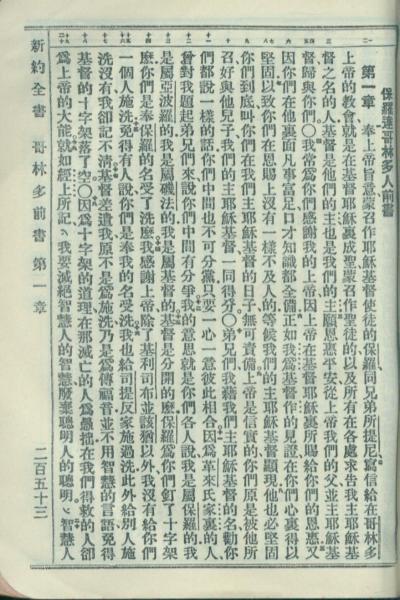 保羅達哥林多人前書
第一章、奉上帝旨意蒙召作耶穌基督使徒的保羅同兄弟所提尼寫信給在哥林多
上帝的教會就是在基督耶穌裏成聖蒙召作聖徒的以及所有在各處求告我主耶穌基
督之名的人基督是他們的主也是我們的主願恩惠平安從上帝我們的父並主耶穌基
督歸與你們〇我常爲你們感謝我的上帝因上帝在基督耶穌裏所賜給你們的恩惠又
因你們在他裏面凡事富足口才知識都全備正如我爲基督作的見證在你們心裏得以
堅固以致你們在恩賜上沒有一樣不及人的等候我們的主耶穌基督顯現他也必堅固
你們到底叫你們在我們主耶穌基督的日子無可責備上帝是信實的你們原是被他所
召好與他兒子我們的主耶穌基督一同得分〇弟兄們我藉我們主耶穌基督的名勸你
們都說一樣的話你們中間也不可分黨只要一心一意彼此相合因爲革來氏家裏的人
曾對我題起弟兄們來說你們中間有分爭我的意思就是你們各人說我是屬保羅的我
是屬亞波羅的我是屬磯法的我是屬基督的基督是分開的麽保羅爲你們釘了十字架
麽你們是奉保羅的名受了洗麽我感謝上帝除了基利司布並該猶以外我沒有給你們
一個人施洗免得有人說你們是奉我的名受洗我也給司提反家施過洗此外給別人施
洗沒有我卻記不淸基督差遣我原不是爲施洗乃是爲傳福音並不用智慧的言語免得
基督的十字架落了空〇因爲十字架的道理在那滅亡的人爲愚拙在我們得救的人卻
爲上帝的大能就如經上所記我要滅絕智慧人的智慧廢棄聰明人的聰明智慧人
新約全書 哥林多前書 第一章 二百五十三